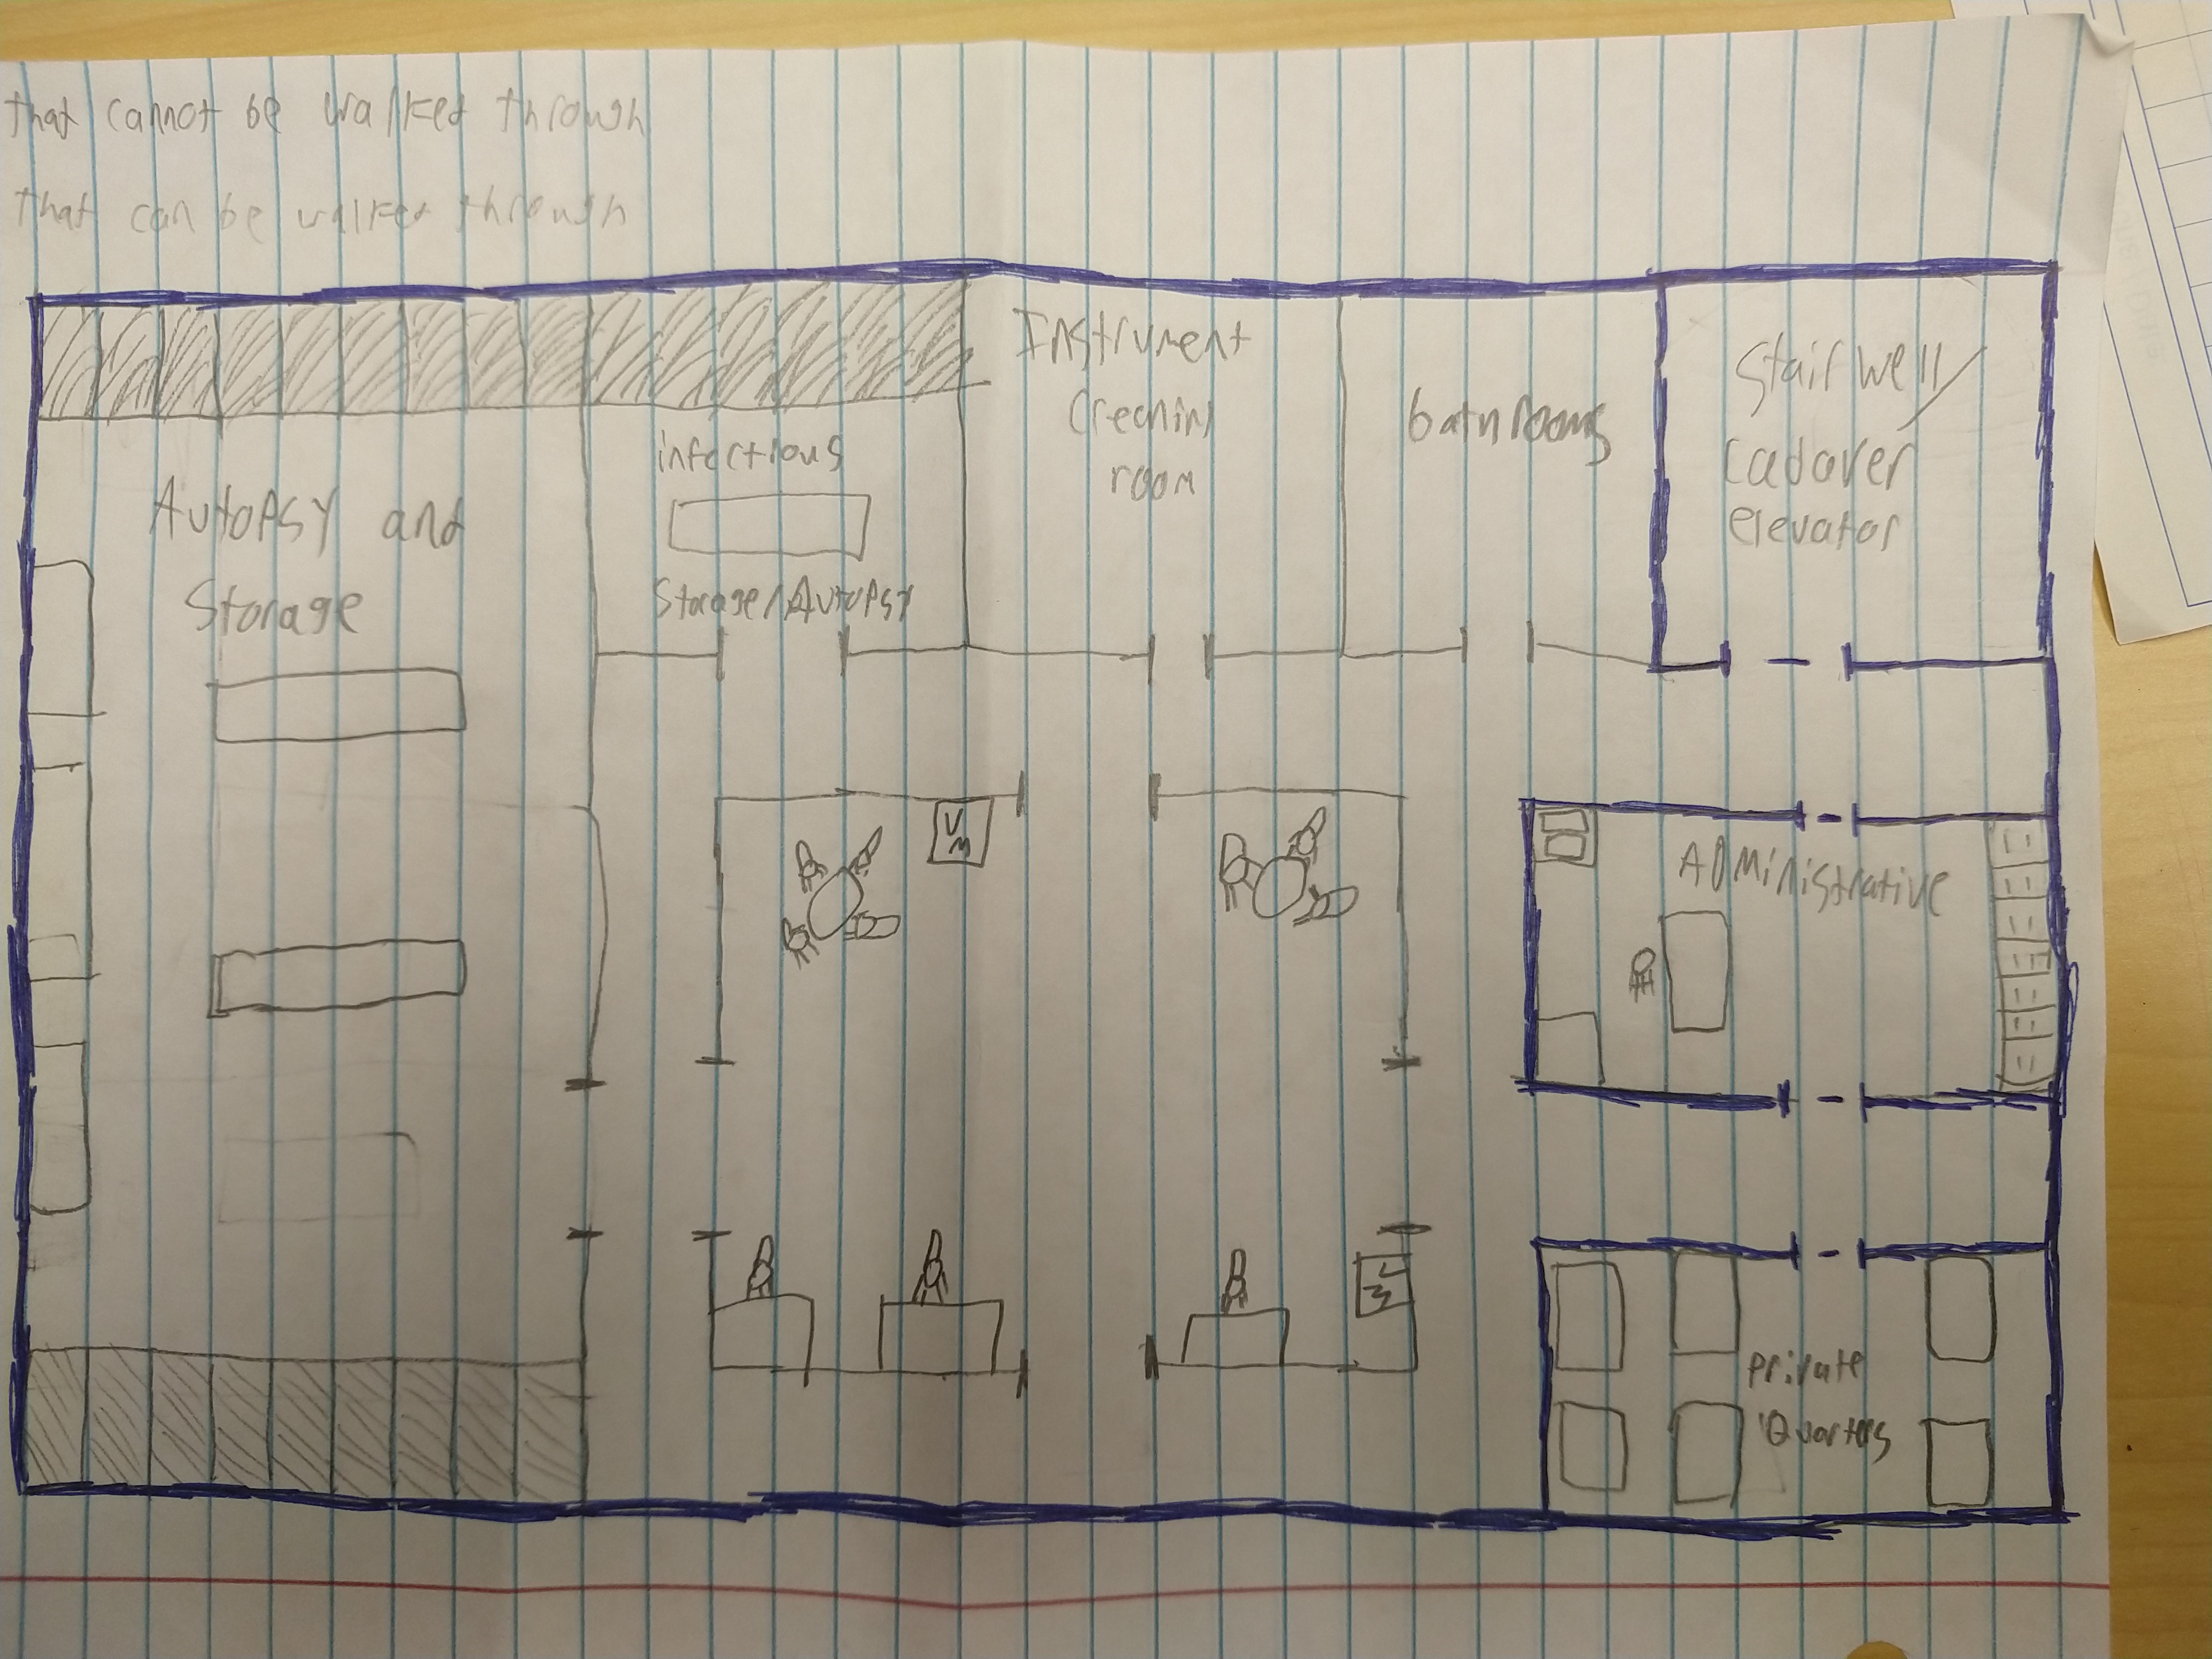 that cannot be walked through
that can be walked through
Autopsy and
Storage
infectious
Storage/Autopsy
Instrument
Crecninl
room
bathrooms
Stairwell/
Cadaver
elevator
Administrative
Private
Quarters
VM